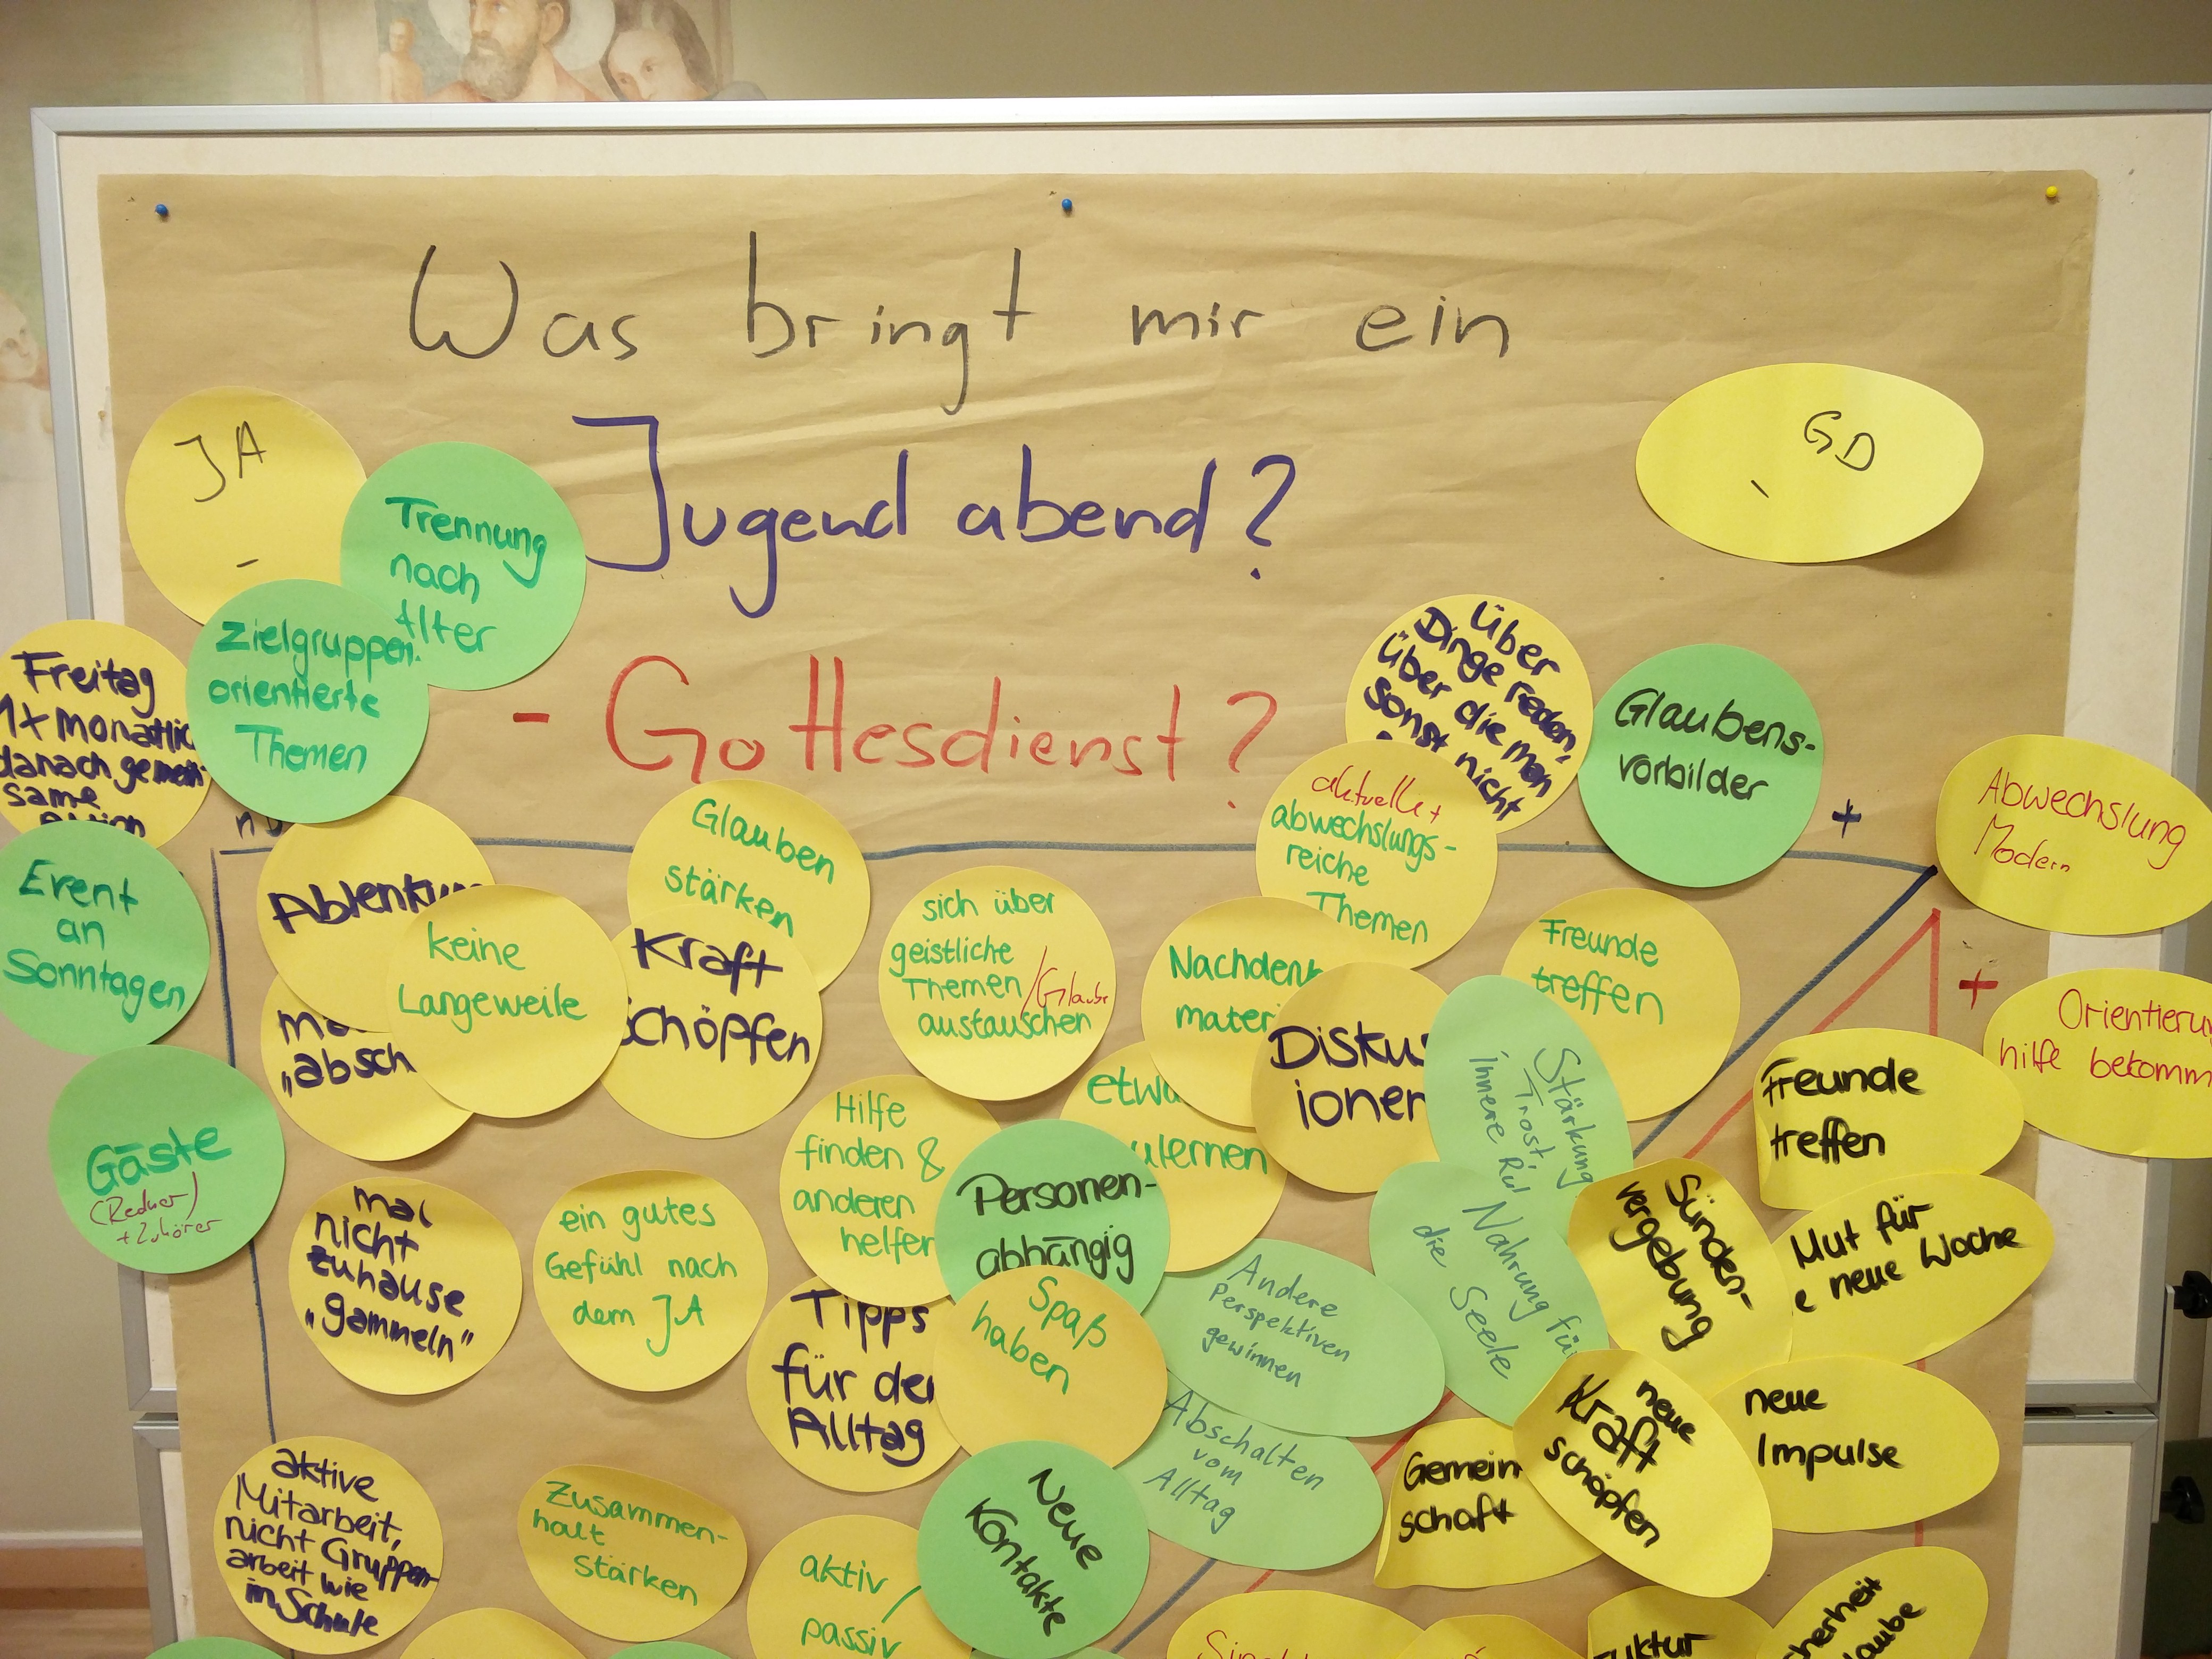 Was bringt mir ein
Jugendabend?
- Gottesdienst?
JA
-
GD
-
Trennung
nach
Alter
Zielgruppen-
orientierte
Themen
Freitag
1x monatlic
danach gemein-
same
Aktion
Event
an
Sonntagen
Gäste
(Redner)
+ Zuhörer
Über
Dinge reden,
über die man
sonst nicht
Glaubens-
vorbilder
+
Abwechslung
Modern
aktuelle +
abwechslungs-
reiche
Themen
Ablenku
keine
Langeweile
„absch
Glauben
stärken
Kraft
schöpfen
sich über
geistliche
Themen/Glaube
austauschen
Nachdenk
mater
Diskus
ionen
Freunde
treffen
+
Orientieru
hilfe bekomm
Stärkung,
Trost,
innere
Nahrung für
die Seele
Freunde
treffen
Hilfe
finden &
anderen
helfen
etwa
lernen
Personen-
abhängig
mal
nicht
zuhause
„gammeln"
ein gutes
Gefühl nach
dem JA
Tipps
für den
Alltag
Spaß
haben
Andere
Perspektiven
gewinnen
Sünden-
vergebung
Mut für
e neue Woche
Abschalten
vom
Alltag
neue
Kraft
schöpfen
neue
Impulse
Gemein
schaft
aktive
Mitarbeit,
nicht Gruppen-
arbeit wie
in Schule
Zusammen-
halt
stärken
aktiv /
passiv
Neue
Kontakte
uktur
cherheit
laube